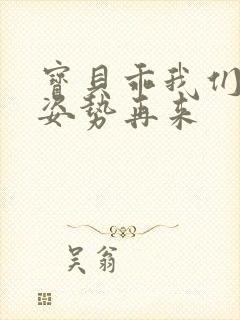 寶貝乖我们
姿势再来
吴翁